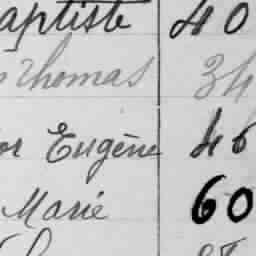 aptiste 40
Thomas 34
or Eugène 46
Marie 60